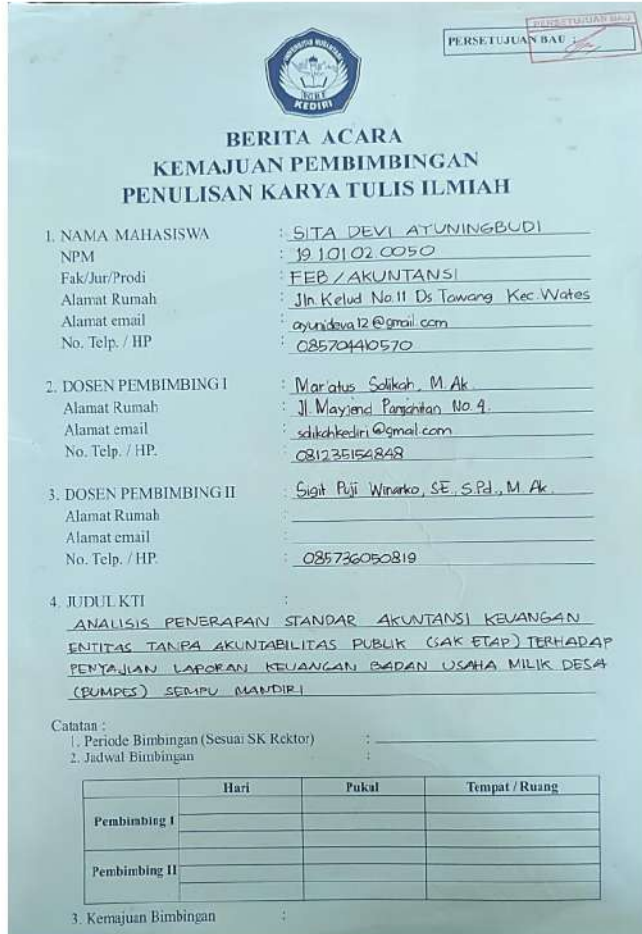 PERSETUJUAN BAU
PERSETUJUAN BAU :
UNIVERSITAS NUSANTARA
PGRI
KEDIRI
BERITA ACARA
KEMAJUAN PEMBIMBINGAN
PENULISAN KARYA TULIS ILMIAH
1. NAMA MAHASISWA : SITA DEVI AYUNINGBUDI
NPM : 19.1.01.02.0050
Fak/Jur/Prodi : FEB / AKUNTANSI
Alamat Rumah : Jln. Kelud No. 11 Ds Tawang Kec. Wates
Alamat email : ayunideva12@gmail.com
No. Telp. / HP : 085704410570
2. DOSEN PEMBIMBING I : Mar'atus Solikah, M.Ak.
Alamat Rumah : Jl. Mayjend Panjahitan No. 4.
Alamat email : solikahkediri@gmail.com
No. Telp. / HP. : 081235154848
3. DOSEN PEMBIMBING II : Sigit Puji Winarko, SE., S.Pd., M.Ak.
Alamat Rumah :
Alamat email :
No. Telp. / HP. : 085736050819
4. JUDUL KTI :
ANALISIS PENERAPAN STANDAR AKUNTANSI KEUANGAN
ENTITAS TANPA AKUNTABILITAS PUBLIK (SAK ETAP) TERHADAP
PENYAJIAN LAPORAN KEUANGAN BADAN USAHA MILIK DESA
(BUMDES) SEMPU MANDIRI
Catatan :
1. Periode Bimbingan (Sesuai SK Rektor) :
2. Jadwal Bimbingan :
Hari Pukul Tempat / Ruang
Pembimbing I
Pembimbing II
3. Kemajuan Bimbingan :